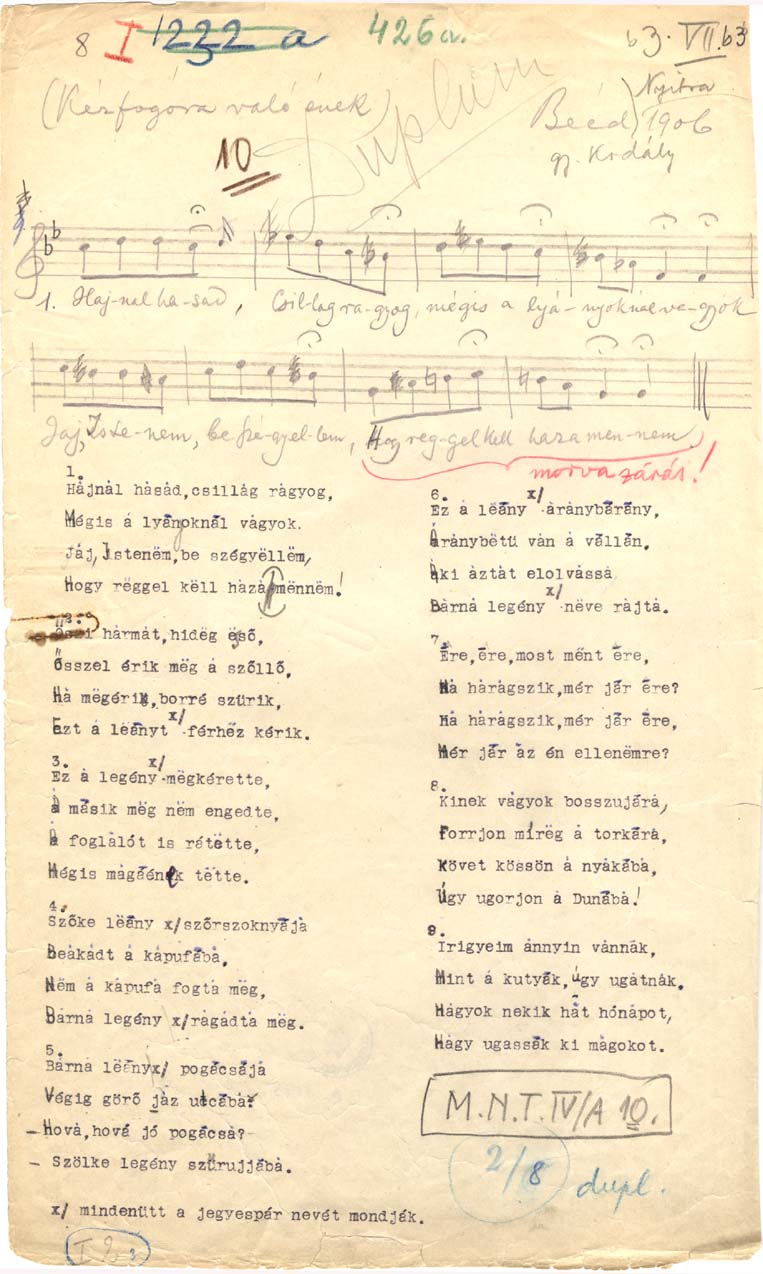 8 I 1222 a 426a. b3. VII. b3
(Kézfogóra való ének)
Duplum
Beéd) Nyitra
1906
gy. Kodály
10
1. Haj-nal ha-sad, Csil-lag ra-gyog, mégis a lyá-nyoknál va-gyok
Jaj, Iste-nem, be szé-gyel-lem, Hogy reg-gel kell haza men-nem.
morva zárás!
1.
Hàjnàl hàsàd,csillàg ràgyog,
Mégis à lyànyoknàl vàgyok.
Jàj,Istenëm,be szégyëllëm,
Hogy rëggel këll hàzà mënnëm!
2.
Őszi hàrmàt,hidëg ëső,
Ősszel érik mëg à szőllő,
Hà mëgérik,borré szürik,
Ezt à lëànyt x/ férhëz kérik.
3.
Ez à legény x/ mëgkérette,
à màsik mëg nëm engedte,
A foglàlót is rátëtte,
Mégis màgàének tëtte.
4.
Szőke lëàny x/szőrszoknyàjà
Beàkàdt à kàpufàbà,
Nëm à kàpufà fogtà mëg,
Bàrnà legény x/ràgàdtà mëg.
5.
Bàrnà lëànyx/ pogàcsàjà
Végig görő jàz utcàbà.
-Hovà,hovà jó pogàcsà?
- Szölke legény szürujjàbà.
x/ mindenütt a jegyespár nevét mondják.
6.
Ez à lëàny x/ àrànybàràny,
Arànybëtü vàn à vàllàn,
Aki àztàt elolvàssà
Bàrnà legény x/ nëve ràjtà.
7.
Ëre,ëre,most mënt ëre,
Hà hàràgszik,mér jàr ëre?
Hà hàràgszik,mér jàr ëre,
Mér jàr àz én ellenëmre?
8.
Kinek vàgyok bosszujàrà,
Forrjon mirëg à torkàrà,
Követ kössön à nyàkàbà,
Úgy ugorjon à Dunàbà!
9.
Irigyeim ànnyin vànnàk,
Mint à kutyàk,úgy ugàtnàk,
Hàgyok nekik hàt hónàpot,
Hàgy ugassàk ki màgokot.
M.N.T. IV/A 10.
2/8 dupl.